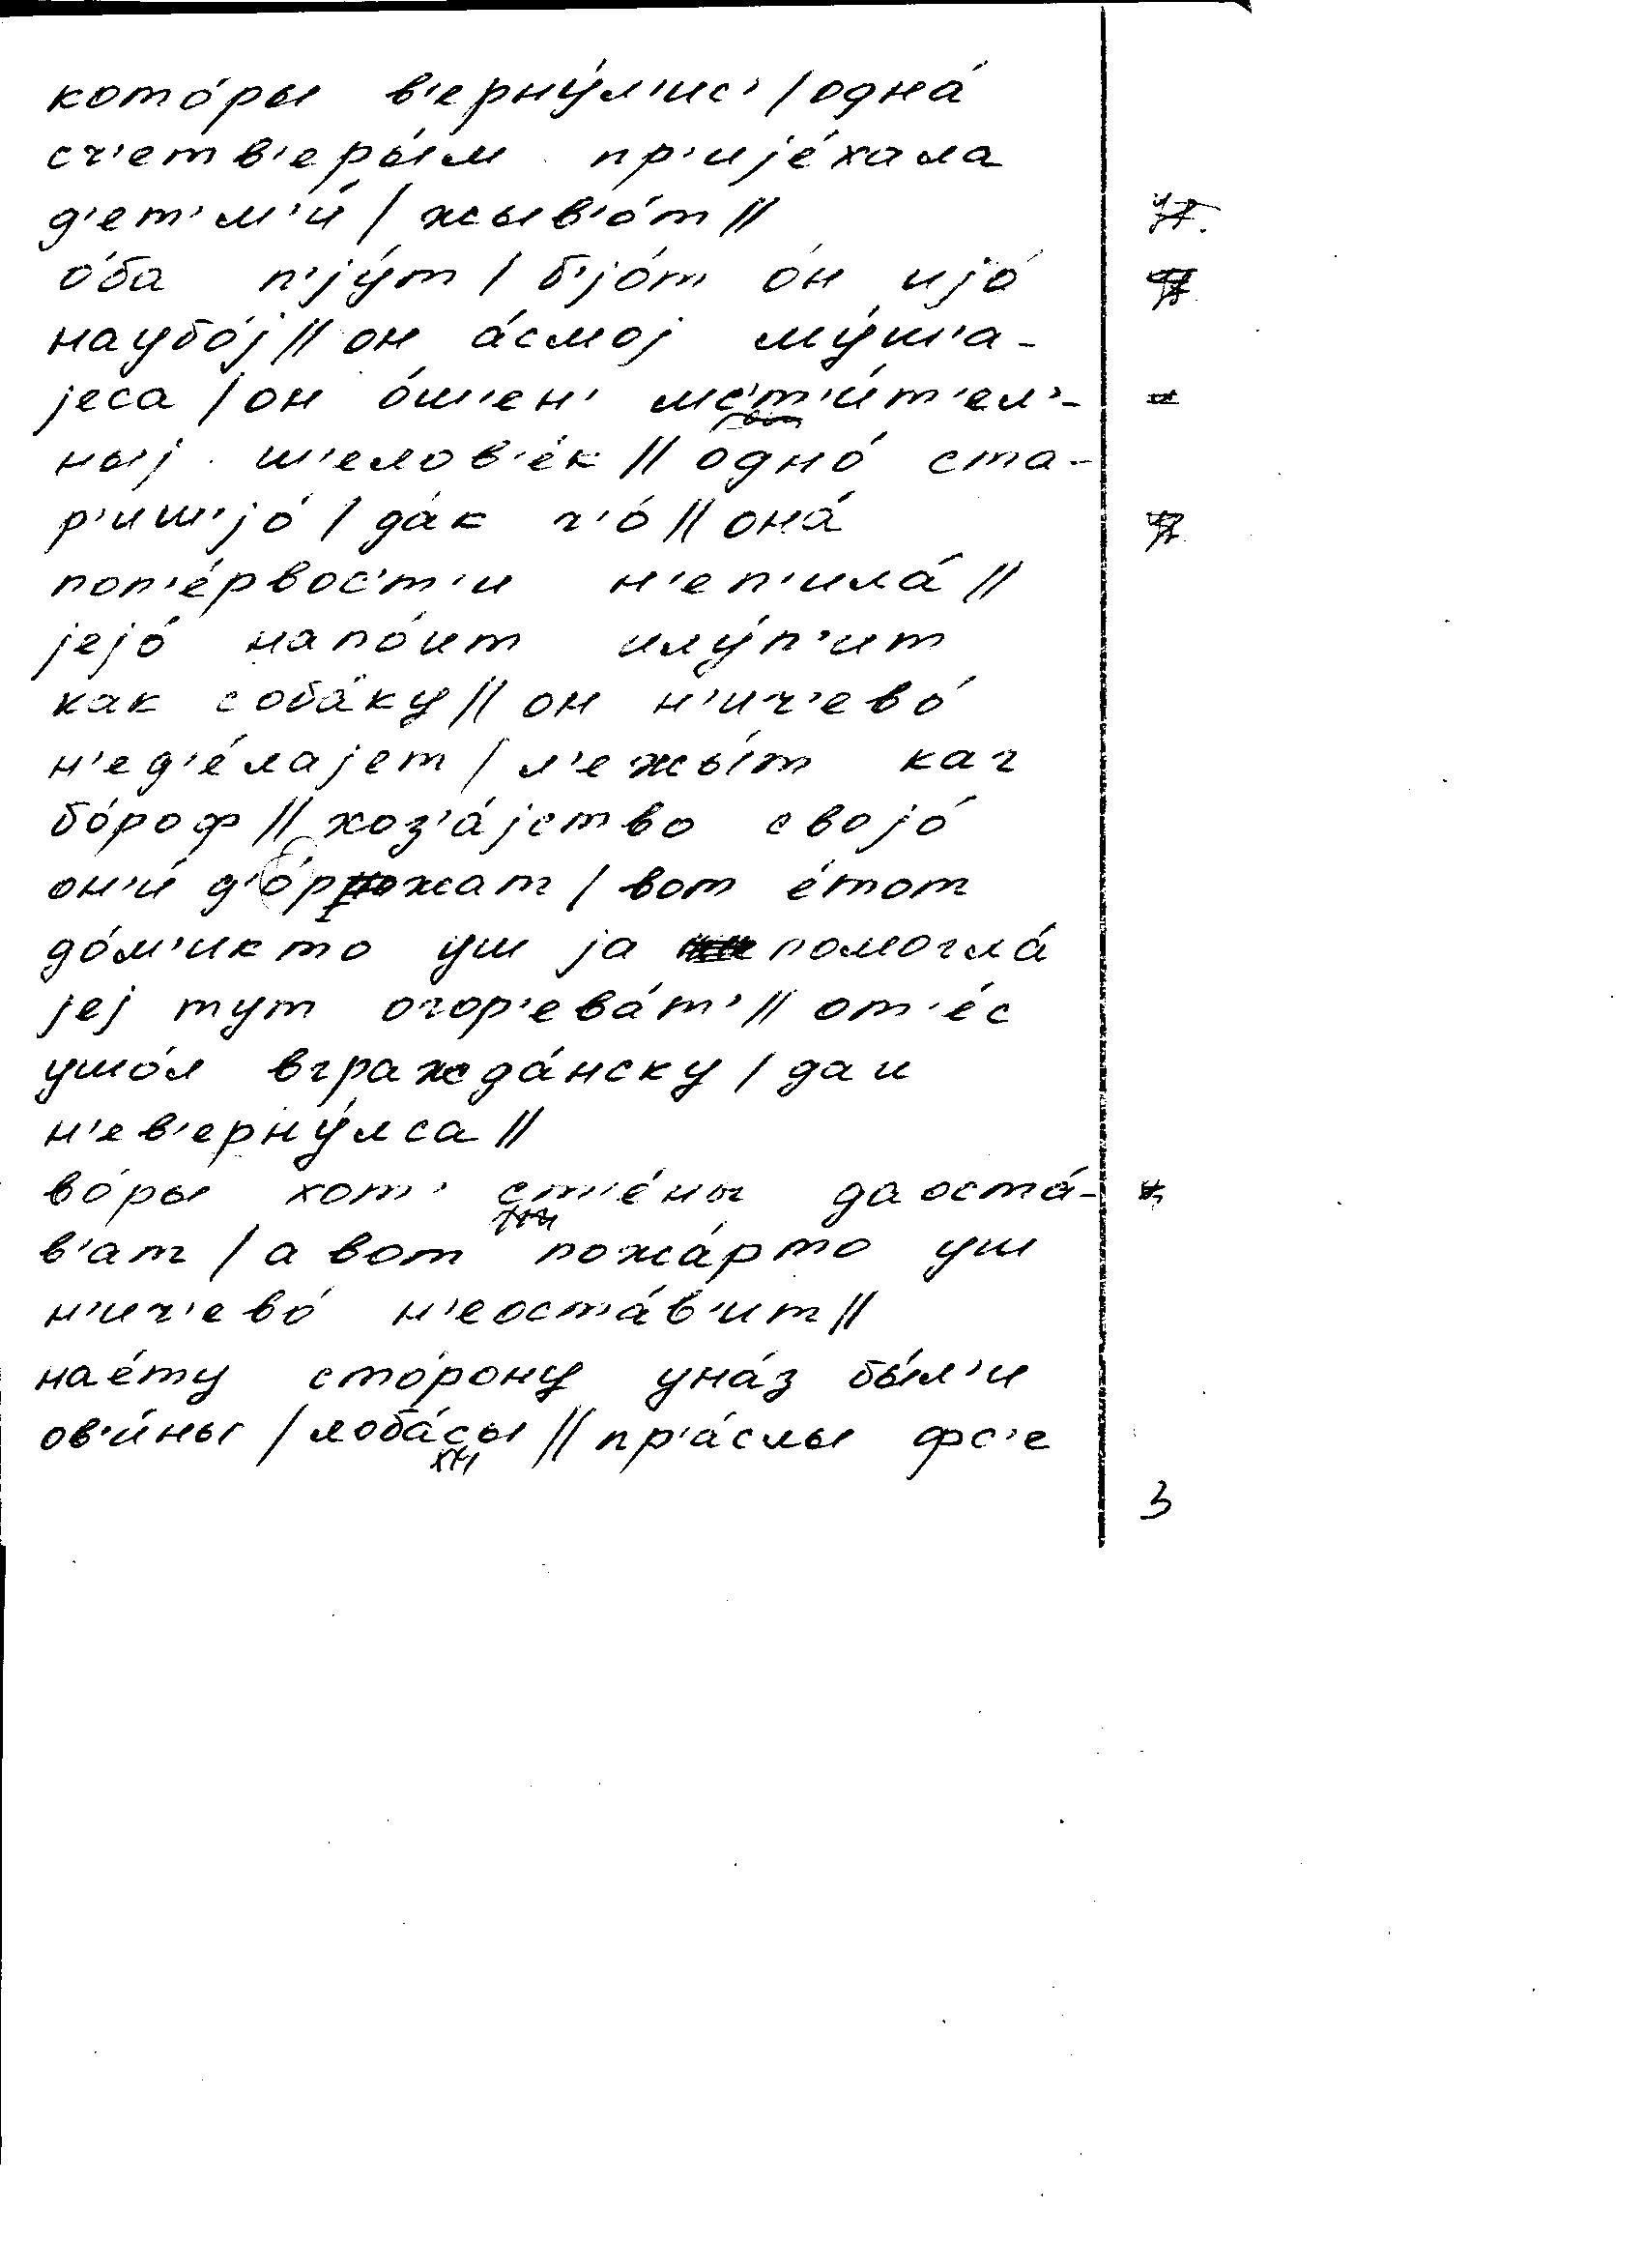 кото́ры в'ерну́л'ис' / одна́
сч'етв'еры́м пр'ијéхала
д'ет'м'и́ / жыв'о́т //
о́ба п'јýт / б'јо́т о́н ијо́
наубо́ј // он а́смој мýш'а-
јеса / он о́ш'ен' мс'т'и́т'ел'-
ныј ш'елов'е́к // одно́ ста-
р'иш'јо́ / да́к ч'о́ // она́
поп'е́рвос'т'и н'еп'ила́ //
јејо́ напо́ит илýп'ит
как соба́ку // он н'ич'ево́
н'ед'е́лајет / л'ежы́т каг
бо́роф // хоз'а́јство својо́
он'и́ д'о́ржат / вот е́тот
до́м'икто уш ја помогла́
јеј тут огор'ева́т' // от'е́с
ушо́л вгражда́нску / даи
н'ев'ернýлса //
во́ры хот' ст'е́ны даоста́-
в'ат / а вот пожа́рто уш
н'ич'ево́ н'еоста́в'ит //
нае́ту сто́рону уна́з бы́л'и
ов'и́ны / лоба́сы // пр'а́слы фс'е
3